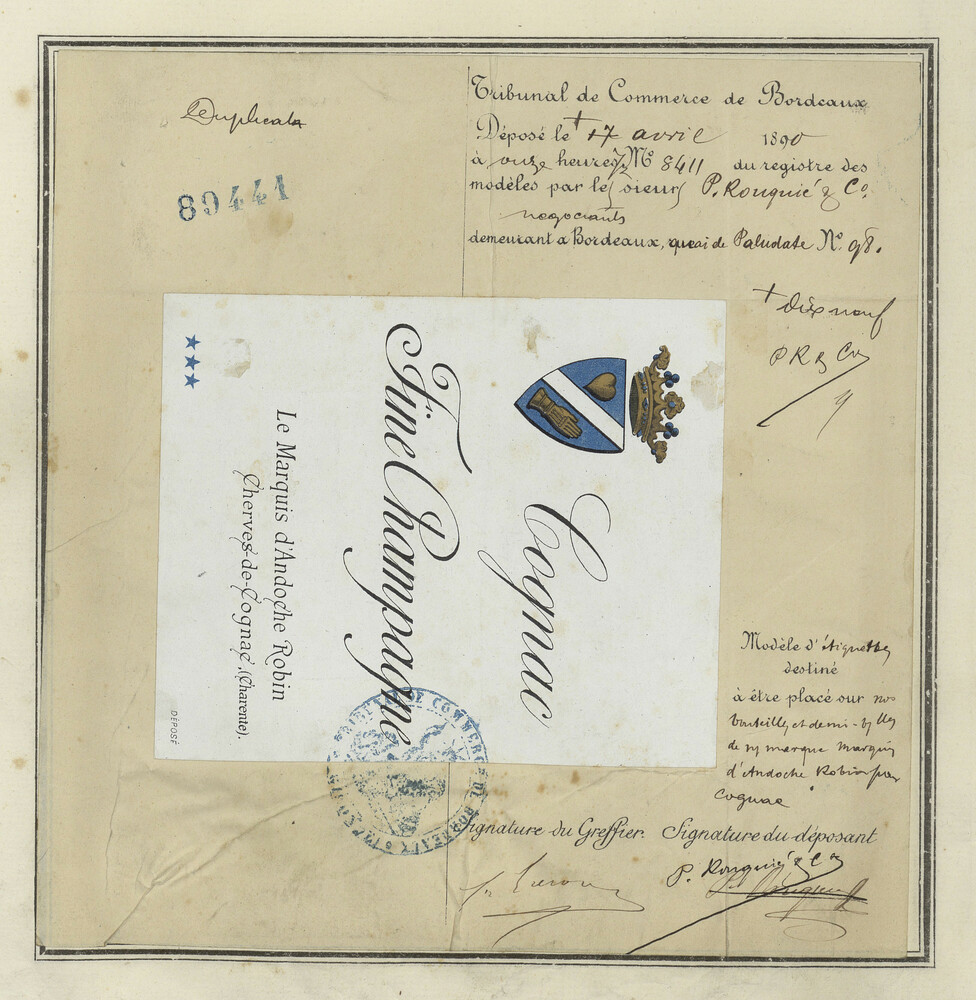 Duplicata
89441
Tribunal de Commerce de Bordeaux
Déposé le + 17 avril 1890
à onze heures, Nº 8411 du registre des
modèles par les sieurs P. Rouquié & Co.
negociants
demeurant a Bordeaux, quai de Paludate Nº 98.
+ dix neuf
P R & Co
Cognac
Fine Champagne
Le Marquis d'Andoche Robin
Cherves-de-Cognac, (Charente).
★★★
DÉPOSÉ
Modèle d'étiquettes
destiné
à être placé sur nos
bouteilles et demi-blles
de marque Marquis
d'Andoche Robin
Cognac
TRIBUNAL DE COMMERCE DE BORDEAUX
Signature du Greffier. Signature du déposant
P. Rouquié & Co